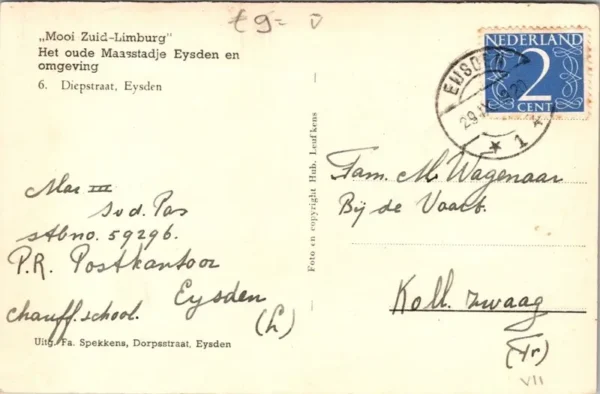 „Mooi Zuid-Limburg"
Het oude Maasstadje Eysden en
omgeving
6. Diepstraat, Eysden
NEDERLAND
2
CENT
EIJSDEN
1
Foto en copyright Hub. Leufkens
Mar III
Svd. Pas
stbno. 59296.
P.R. Postkantoor
Eysden
(L)
chauff. school.
Uitg. Fa. Spekkens, Dorpsstraat, Eysden
Fam. M. Wagenaar
Bij de Vaart.
Koll. zwaag
(Fr)
VII